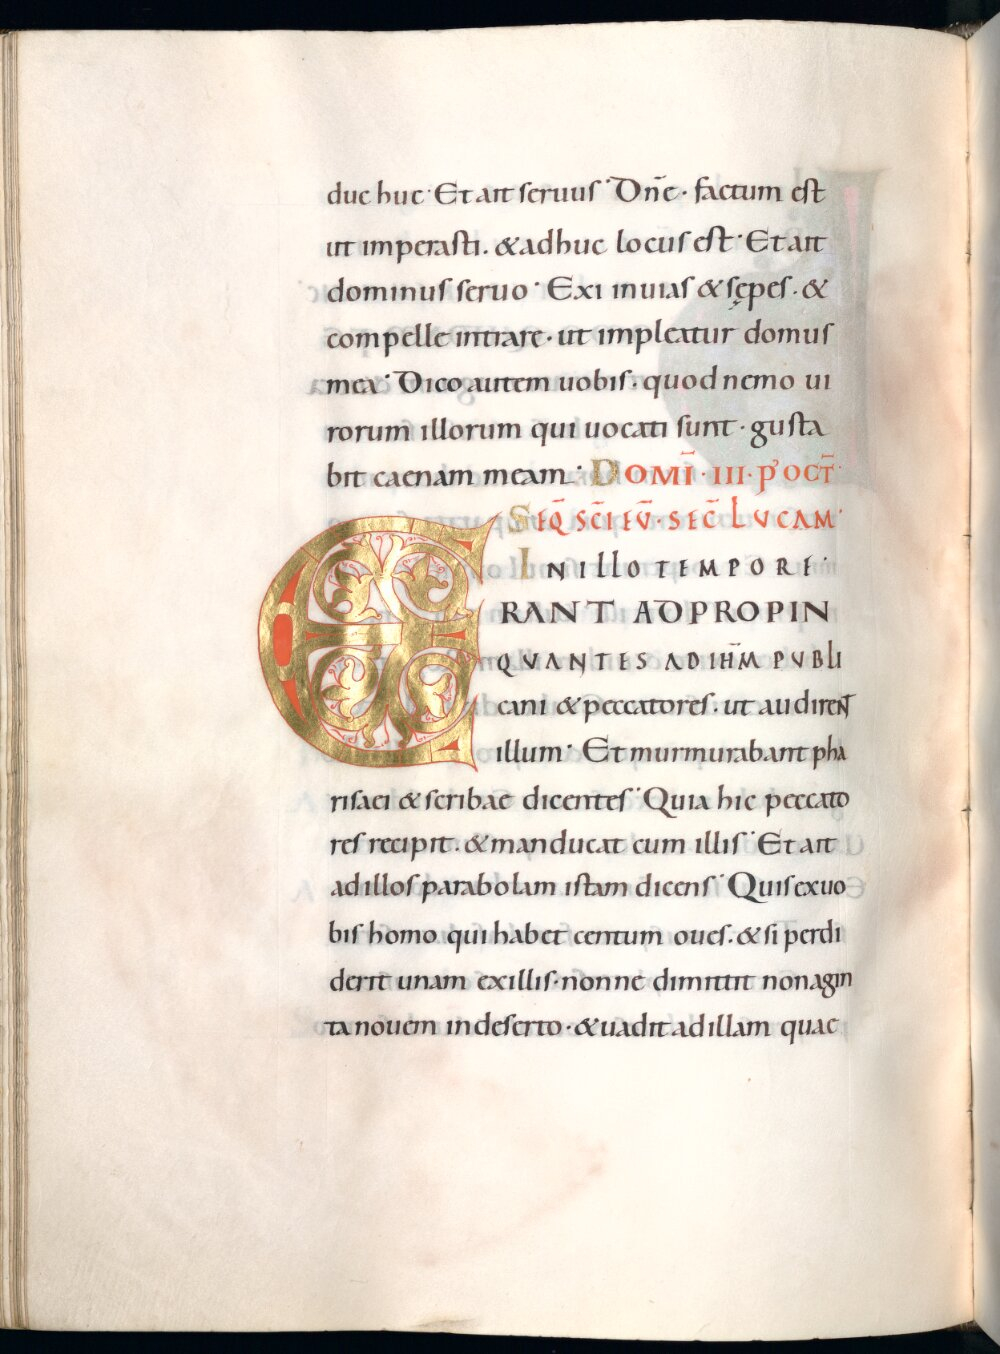 duc huc· Et ait seruus· Dn̄e· factum est
ut imperasti. & adhuc locus est· Et ait
dominus seruo· Exi in uias & sępes· &
compelle intrare· ut impleatur domus
mea· Dico autem uobis· quod nemo ui
rorum illorum qui uocati sunt· gusta
bit caenam meam· DOMĪ· III· P' OCT̄·
SEQ̄ SC̄I EV̄· SEC̄ LVCAM·
IN ILLO TEMPORE·
ERANT ADPROPIN
QVANTES AD IHM̄ PVBLI
cani & peccatores. ut audirent
illum· Et murmurabant pha
risaei & scribae dicentes· Quia hic peccato
res recipit. & manducat cum illis· Et ait
ad illos parabolam istam dicens· Quis ex uo
bis homo qui habet centum oues. & si perdi
derit unam ex illis· nonne dimittit nonagin
ta nouem in deserto· & uadit ad illam quae